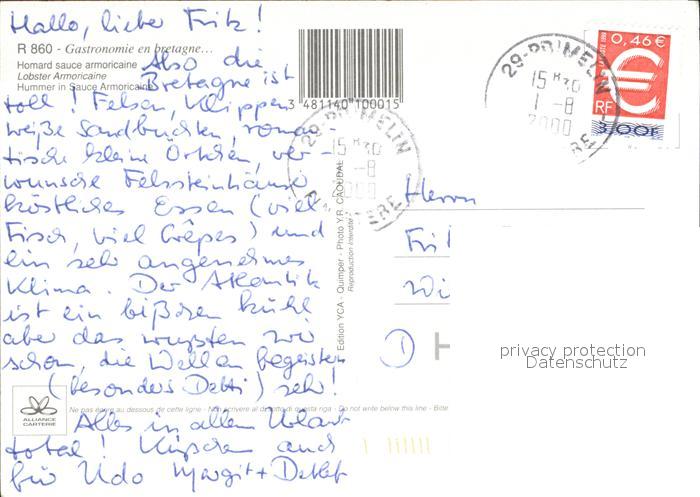 Hallo, lieber Fritz!
R 860 - Gastronomie en bretagne...
Homard sauce armoricaine
Lobster Armoricaine
Hummer in Sauce Armoricaine
Also die
Bretagne ist
toll! Felsen, Klippen
weiße Sandbuchten, roman-
tische kleine Örtchen, ver-
wunschene Felssteinhäuser
köstliches Essen (viel
Fisch, viel Crêpes) und
ein sehr angenehmes
Klima. Der Atlantik
ist ein bißchen kühl
aber das wußten wir
schon, die Wellen begeistern
(besonders Detti) sehr!
Alles in allem Urlaub
total! Küßchen auch
für Udo Margit + Detlef
3 481140 100015
29-PRIMELIN
15 H30
1 -8
2000
FINISTERE
29-PRIMELIN
15 H30
1 -8
2000
0,46 €
RF
3,00F
Edition YCA - Quimper - Photo Y.R. CAOUDAL
Reproduction interdite
Herrn
Fri
Wi
D
H
privacy protection
Datenschutz
ALLIANCE
CARTERIE
Ne pas écrire au dessous de cette ligne - Non scrivere al di sotto di questa riga - Do not write below this line - Bitte